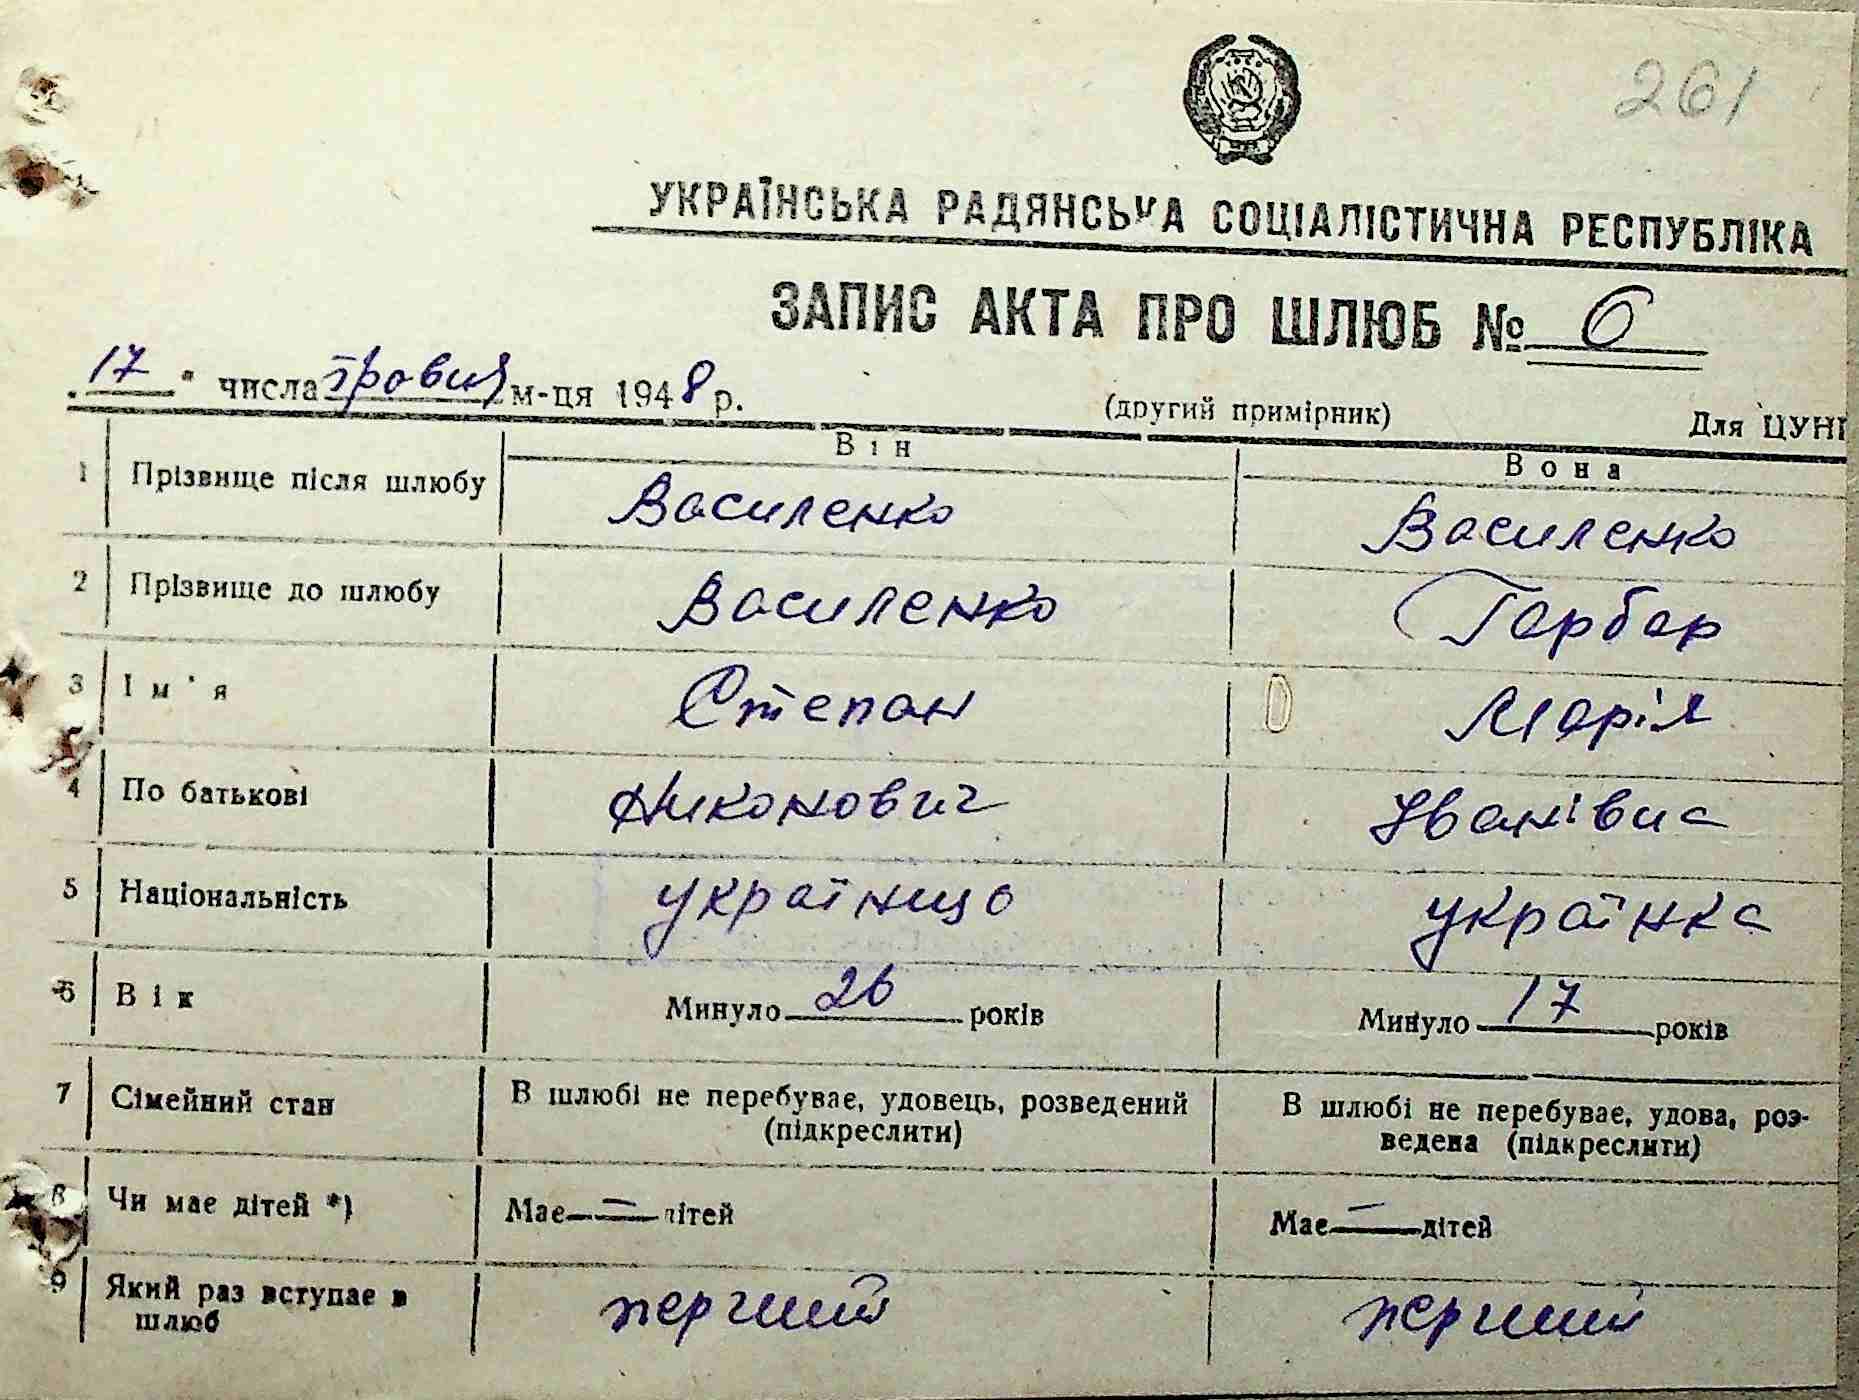 261
УКРАЇНСЬКА РАДЯНСЬКА СОЦІАЛІСТИЧНА РЕСПУБЛІКА
ЗАПИС АКТА ПРО ШЛЮБ № 6
„17" числа травня м-ця 1948 р. (другий примірник) Для ЦУНГ
Він Вона
1 Прізвище після шлюбу Василенко Василенко
2 Прізвище до шлюбу Василенко Гарбар
3 Ім'я Степан Марія
4 По батькові Никонович Іванівна
5 Національність українцо українка
6 Вік Минуло 26 років Минуло 17 років
7 Сімейний стан В шлюбі не перебуває, удовець, розведений В шлюбі не перебуває, удова, роз-
(підкреслити) ведена (підкреслити)
8 Чи має дітей *) Має — дітей Має — дітей
9 Який раз вступає в перший перший
шлюб